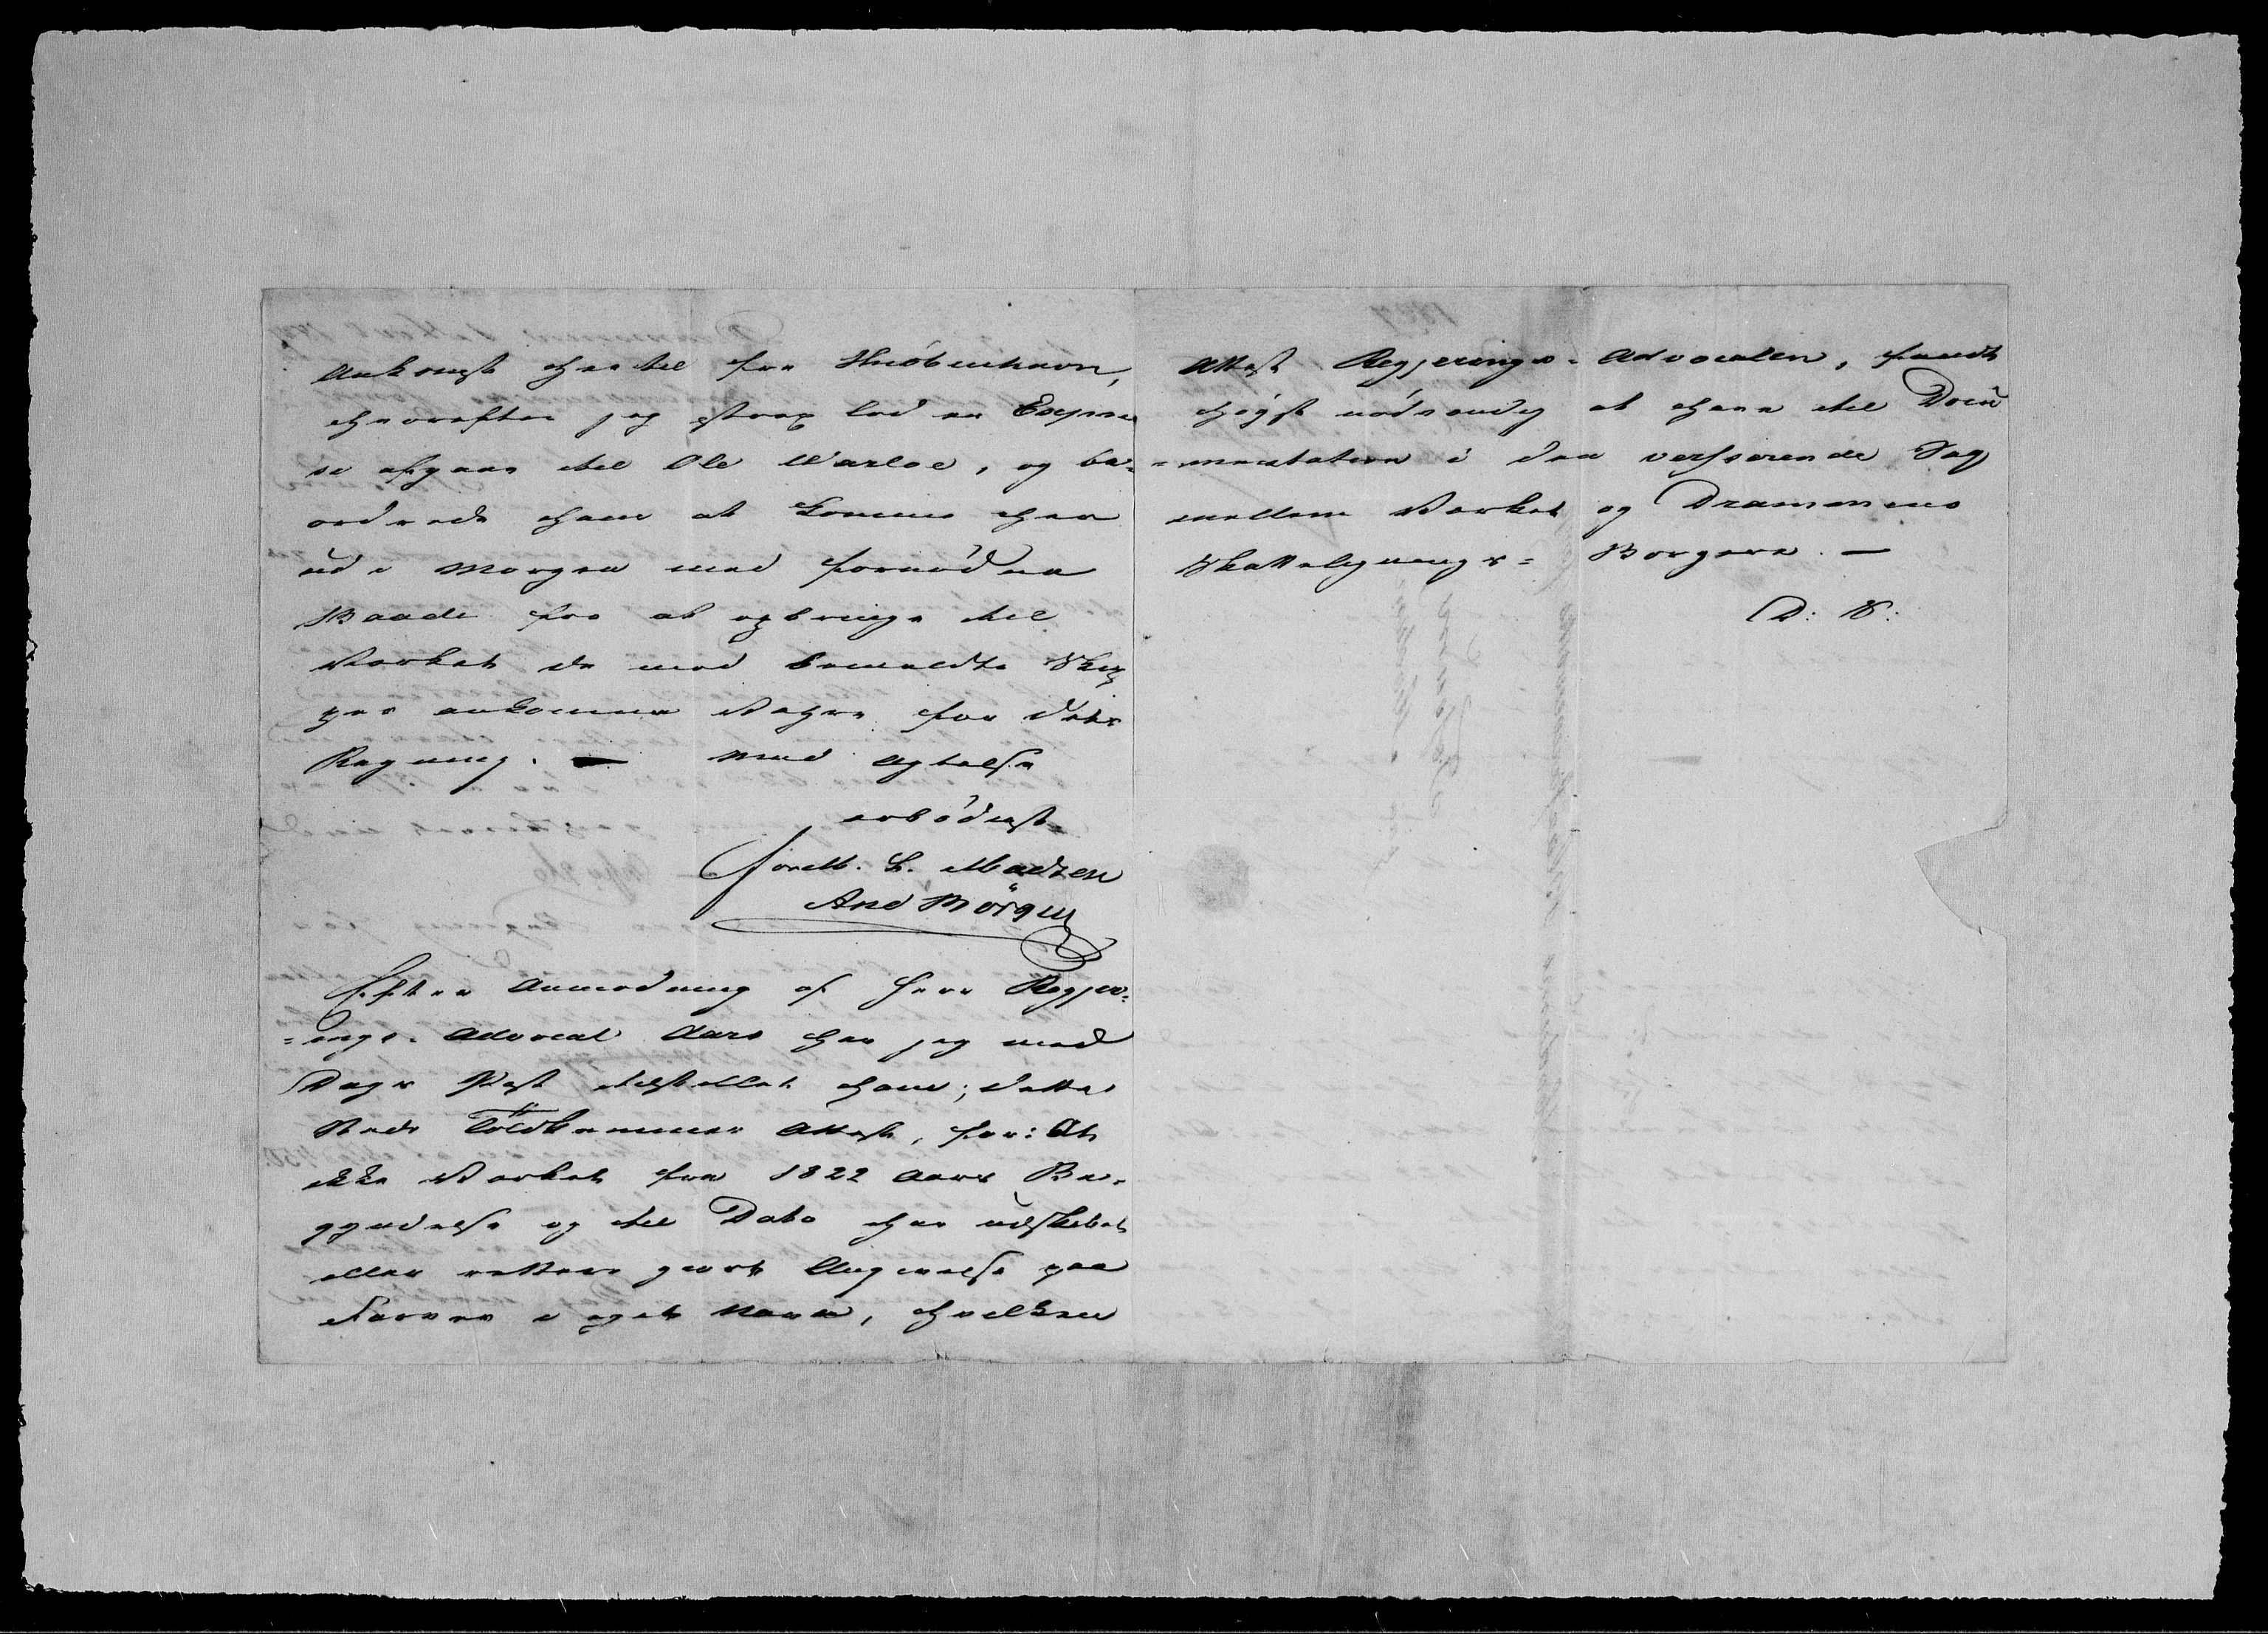 Ankomst hertil fra Kiöbenhavn,
hvorefter jeg strax lod en Expres-
se afgaae til Ole Varloe, og be-
ordrede ham at komme her
ud i Morgen med fornödne
Baade for at opbringe til
Værket de med bemeldte Skip
per ankomne Vahre for dets
Regning. — Med Agtelse
erbödigst
for M. C. Madsen
And Börgen
Efter Anmodning af Herr Regjer-
=ings-Advocat Aars har jeg med
Dags Post tilstillet ham, dette
Steds Toldkammer Attest, for: At
ikke Værket fra 1822 Aars Be-
gyndelse og til Dato har udskibet
eller rettere gjort Angivelse paa
Varer i eget Navn, hvilken
Attest Regjerings-Advocaten, fandt
högst nödvendig at have til Docu
=mentation i den verserende Sag
mellem Værket og Drammens
Skattelignings-Borgere. —
D: S:
1827